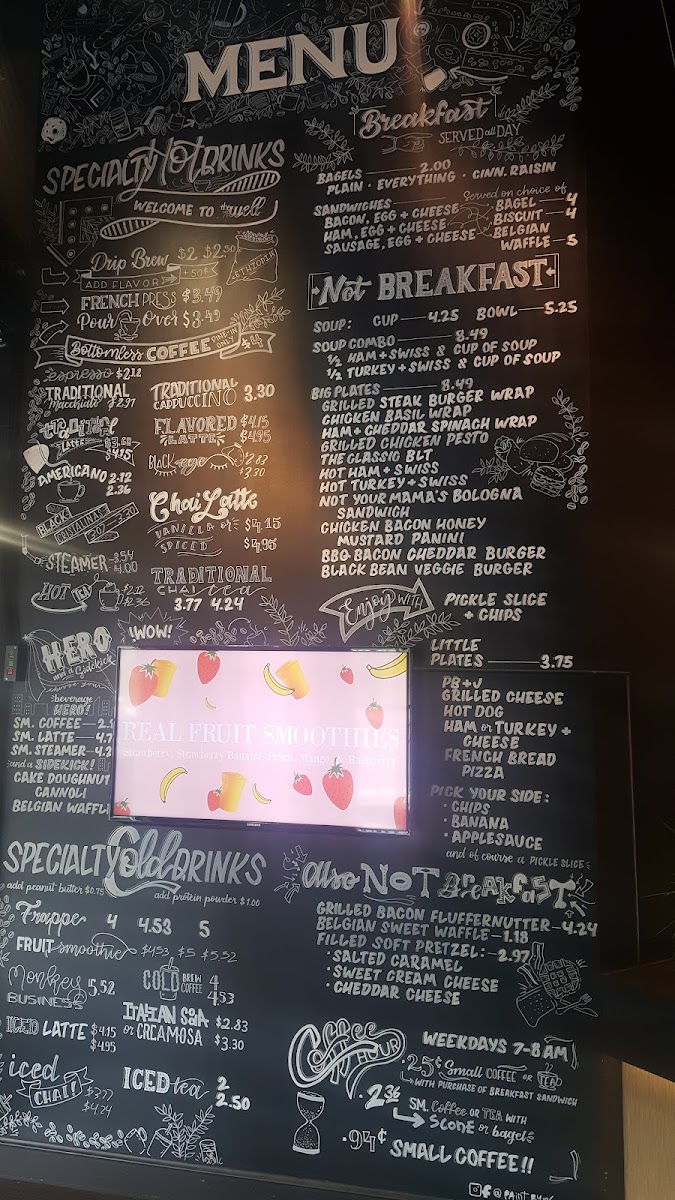 MENU
SPECIALTY Hot DRINKS
WELCOME TO the well
Drip Brew $2 $2.50
ADD FLAVOR +50¢
ETHIOPIA
FRENCH PRESS $3.49
Pour Over $3.49
Bottomless COFFEE DINE-IN ONLY
espresso $2.12
TRADITIONAL Macchiato $2.97
TRADITIONAL CAPPUCCINO 3.30
LATTE $3.68 $4.15
FLAVORED LATTE $4.15 $4.95
AMERICANO 2.12
2.36
BLACK eye $2.83
$3.30
Chai Latte
VANILLA or SPICED $4.15
$4.95
STEAMER 3.54
4.00
HOT TEA $2.12
$2.36
TRADITIONAL
CHAI tea
3.77 4.24
HERO
and a Sidekick
WOW!
choose your
beverage
HERO!
SM. COFFEE
SM. LATTE
SM. STEAMER
and a SIDEKICK!
CAKE DOUGHNUT
CANNOLI
BELGIAN WAFFL
REAL FRUIT SMOOTHIES
Strawberry, Strawberry Banana, Peach, Mango, & Raspberry
SPECIALTY Cold DRINKS
add peanut butter $0.75
add protein powder $1.00
Frappe 4 4.53 5
FRUIT smoothie $4.53 $5 $5.52
Monkey BUSINESS 5.52
COLD BREW COFFEE 4
4.53
ICED LATTE $4.15
$4.95
ITALIAN SODA or CREAMOSA $2.83
$3.30
iced CHAI! $3.77
$4.24
ICED tea 2
2.50
Breakfast
SERVED all DAY
BAGELS 2.00
PLAIN · EVERYTHING · CINN. RAISIN
SANDWICHES Served on choice of
BACON, EGG + CHEESE
HAM, EGG + CHEESE
SAUSAGE, EGG + CHEESE
BAGEL 4
BISCUIT 4
BELGIAN
WAFFLE 5
Not BREAKFAST
SOUP: CUP 4.25 BOWL 5.25
SOUP COMBO 8.49
½ HAM + SWISS & CUP OF SOUP
½ TURKEY + SWISS & CUP OF SOUP
BIG PLATES 8.49
GRILLED STEAK BURGER WRAP
CHICKEN BASIL WRAP
HAM + CHEDDAR SPINACH WRAP
GRILLED CHICKEN PESTO
THE CLASSIC BLT
HOT HAM + SWISS
HOT TURKEY + SWISS
NOT YOUR MAMA'S BOLOGNA
SANDWICH
CHICKEN BACON HONEY
MUSTARD PANINI
BBQ BACON CHEDDAR BURGER
BLACK BEAN VEGGIE BURGER
Enjoy WITH PICKLE SLICE
+ CHIPS
LITTLE
PLATES 3.75
PB+J
GRILLED CHEESE
HOT DOG
HAM or TURKEY +
CHEESE
FRENCH BREAD
PIZZA
PICK YOUR SIDE:
· CHIPS
· BANANA
· APPLESAUCE
and of course a PICKLE SLICE
Also NOT BreakfasT
GRILLED BACON FLUFFERNUTTER 4.24
BELGIAN SWEET WAFFLE 1.18
FILLED SOFT PRETZEL: 2.97
· SALTED CARAMEL
· SWEET CREAM CHEESE
· CHEDDAR CHEESE
Coffee HOUR
WEEKDAYS 7-8AM
· 25¢ Small COFFEE or TEA
WITH PURCHASE OF BREAKFAST SANDWICH
· 2.36 SM. Coffee or TEA WITH
Scone or bagel
· 94¢ SMALL COFFEE!!